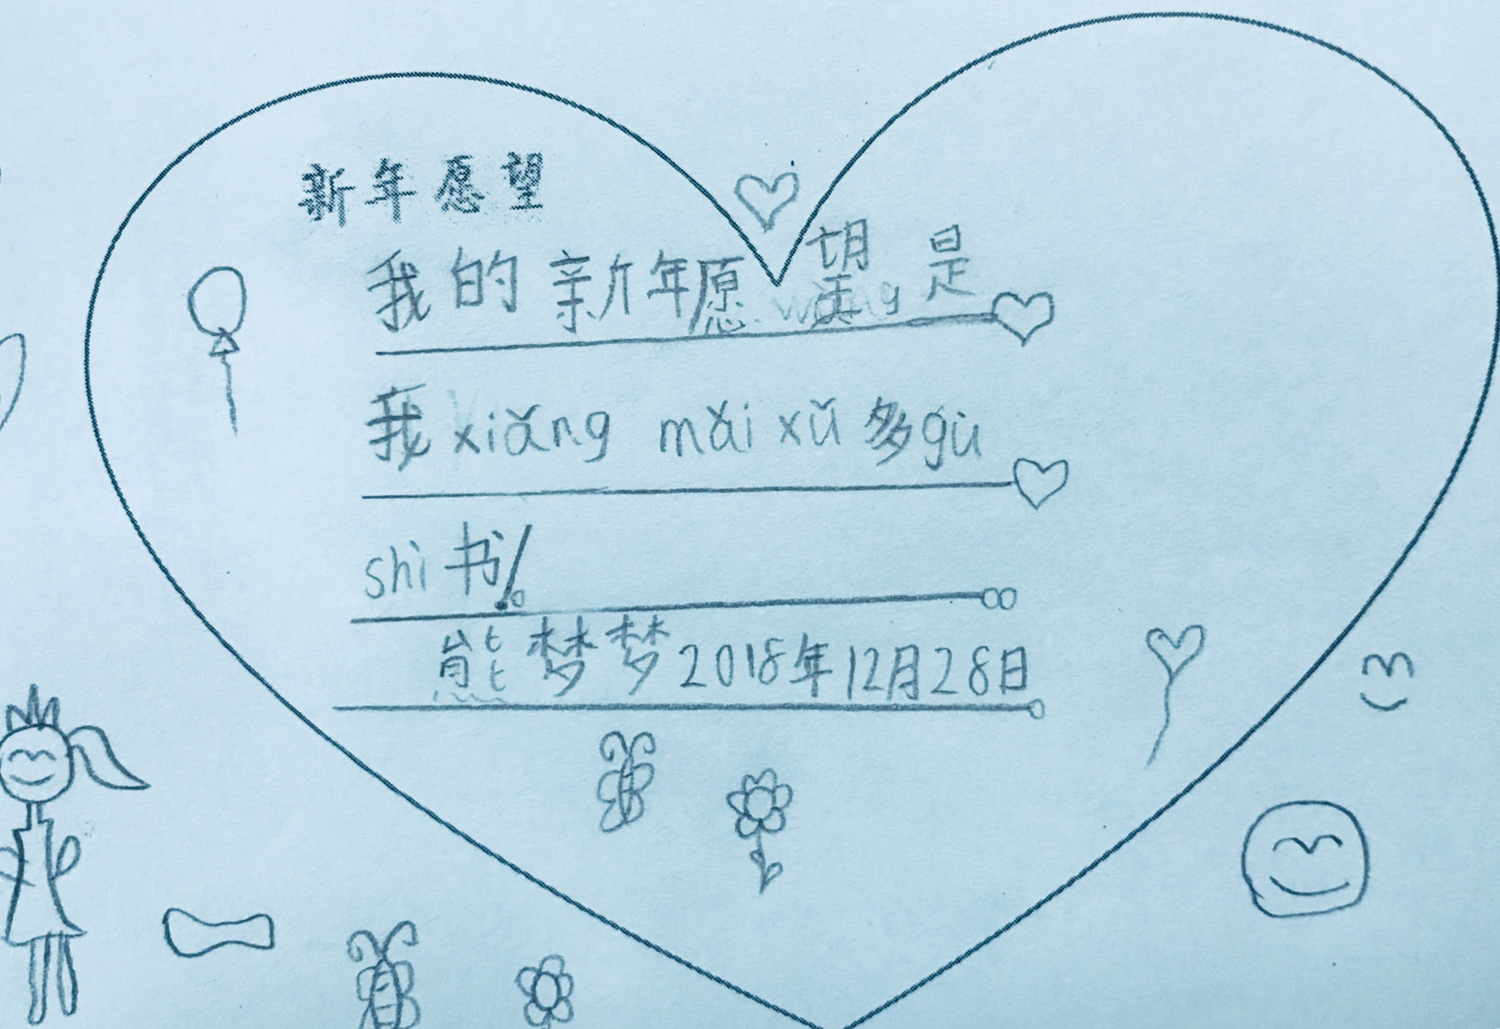 新年愿望
我的新年愿望是
我 xiǎng mǎi xǔ 多 gù
shì 书!
熊梦梦 2018年12月28日